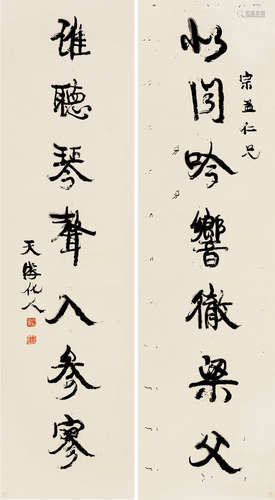 宗 仁兄
似聞吟響徹梁父
誰聽琴聲入參寥
天游化人